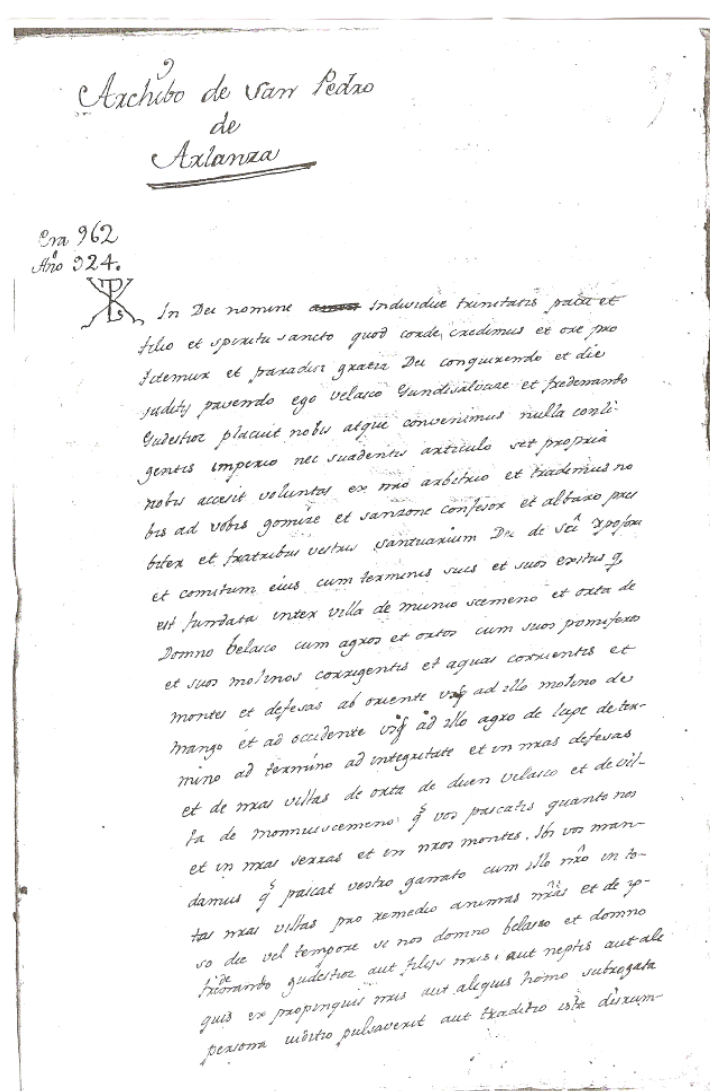 9
Archibo de San Pedro
de
Arlanza
Era 962
Año 924.
In Dei nomine Individue trinitatis patri et
filio et spiritu sancto quod corde credimus et ore pro
fitemur et paradisi gratia Dei conquirendo et die
juditij pavendo ego velasco Gundisalviz et fredenando
Gudestioz placuit nobis atque convenimus nulla conti-
gentis imperio nec suadentis articulo set propria
nobis accesit voluntas ex nro arbitrio et trademus no
bis ad vobis gomize et sanzone confesor et albaro pres
biter et fratribus vestris santuarium Dei de Sci Xpofori
et comitum eius cum terminis suis et suos exitus q
est fundata inter villa de munio scemeno et orta de
Domno belasco cum agros et ortos cum suos pomiferos
et suos molinos corrigentis et aquas corrientis et
montes et defesas ab oriente usq ad illo molino de
mango et ad occidente usq ad illo agro de lupe de ter-
mino ad termino ad integritate et in nras defesas
et de nras villas de orta de duen velasco et de vil-
la de monniuscemeno q vos pascatis quanto nos
et in nras serras et in nros montes. Ibi vos man-
damus q pascat vestro ganato cum illo nro in to-
tas nras villas pro remedio animas nras et de ip-
so die vel tempore si nos domno belasco et domno
fredenando gudestioz aut filijs nris, aut neptis aut ale
quis ex propinquis nris aut aliquis homo subrogata
persona iuditio pulsaverit aut traditio ista disrum-